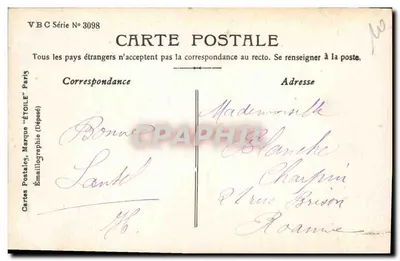 VBC Série N° 3098
CARTE POSTALE
Tous les pays étrangers n'acceptent pas la correspondance au recto. Se renseigner à la poste.
Correspondance
Adresse
Cartes Postales, Marque "ÉTOILE" Paris
Émaillographie (Déposé)
Bonne
Santé
H.
Mademoiselle
Blanche
Charpin
21 rue Brison
Roanne
CARTE POSTALE